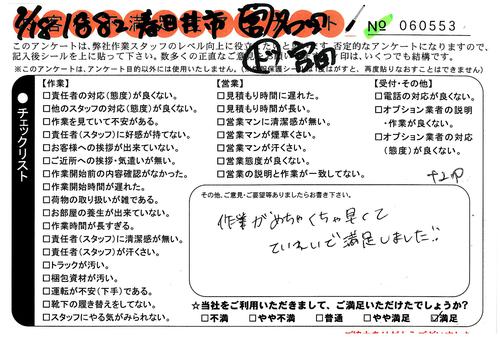 2/18 1882 春日井市
№ 060553
このアンケートは、弊社作業スタッフのレベル向上に役立
否定的なアンケートになりますので、
記入後シールを上に貼って下さい。数多くの正直なご意見
印は、いくつでも結構です。
※このアンケートは、アンケート目的以外には使用いたしません。
保護シールをはがすと、再度貼りなおすことはできません)
●チェックリスト
【作業】
□責任者の対応(態度)が良くない。
□他のスタッフの対応(態度)が良くない。
□作業を見ていて不安がある。
□責任者(スタッフ)に好感が持てない。
□お客様への挨拶が出来ていない。
□ご近所への挨拶・気遣いが無い。
□作業開始前の内容確認がなかった。
□作業開始時間が遅れた。
□荷物の取り扱いが雑である。
□お部屋の養生が出来ていない。
□作業時間が長すぎる。
□責任者(スタッフ)に清潔感が無い。
□責任者(スタッフ)が汗くさい。
□トラックが汚い。
□梱包資材が汚い。
□運転が不安(下手)である。
□靴下の履き替えをしてない。
□スタッフにやる気がみられない。
【営業】
□見積もり時間に遅れた。
□見積もり時間が長い。
□営業マンに清潔感が無い。
□営業マンが煙草くさい。
□営業マンが汗くさい。
□営業態度が良くない。
□営業の説明と作業が一致してない。
【受付・その他】
□電話の対応が良くない。
□オプション業者の説明
・作業が良くない。
□オプション業者の対応
(態度)が良くない。
その他、ご意見・ご要望等ありましたらお書き下さい。
作業がめちゃくちゃ早くて
ていねいで満足しました!!
☆当社をご利用いただきまして、ご満足いただけたでしょうか?
□不満 □やや不満 □普通 □やや満足 ☑満足